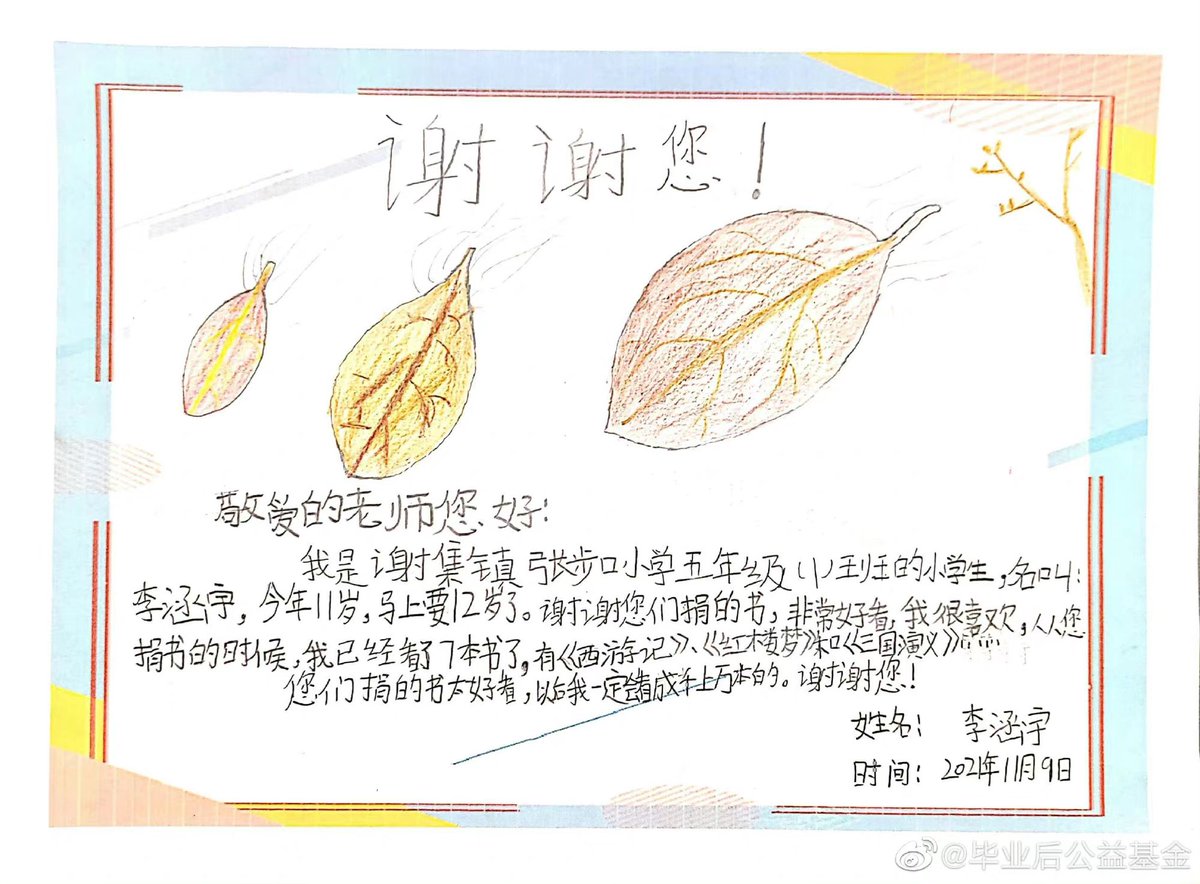 谢谢您!
敬爱的老师您好:
我是谢集镇张步口小学五年级(1)班的小学生,名叫:
李涵宇,今年11岁,马上要12岁了。谢谢您们捐的书,非常好看,我很喜欢,从您
捐书的时候,我已经看了7本书了,有《西游记》、《红楼梦》和《三国演义》……
您们捐的书太好看,以后我一定会看成千上万本的。谢谢您!
姓名: 李涵宇
时间: 2021年11月9日
@毕业后公益基金